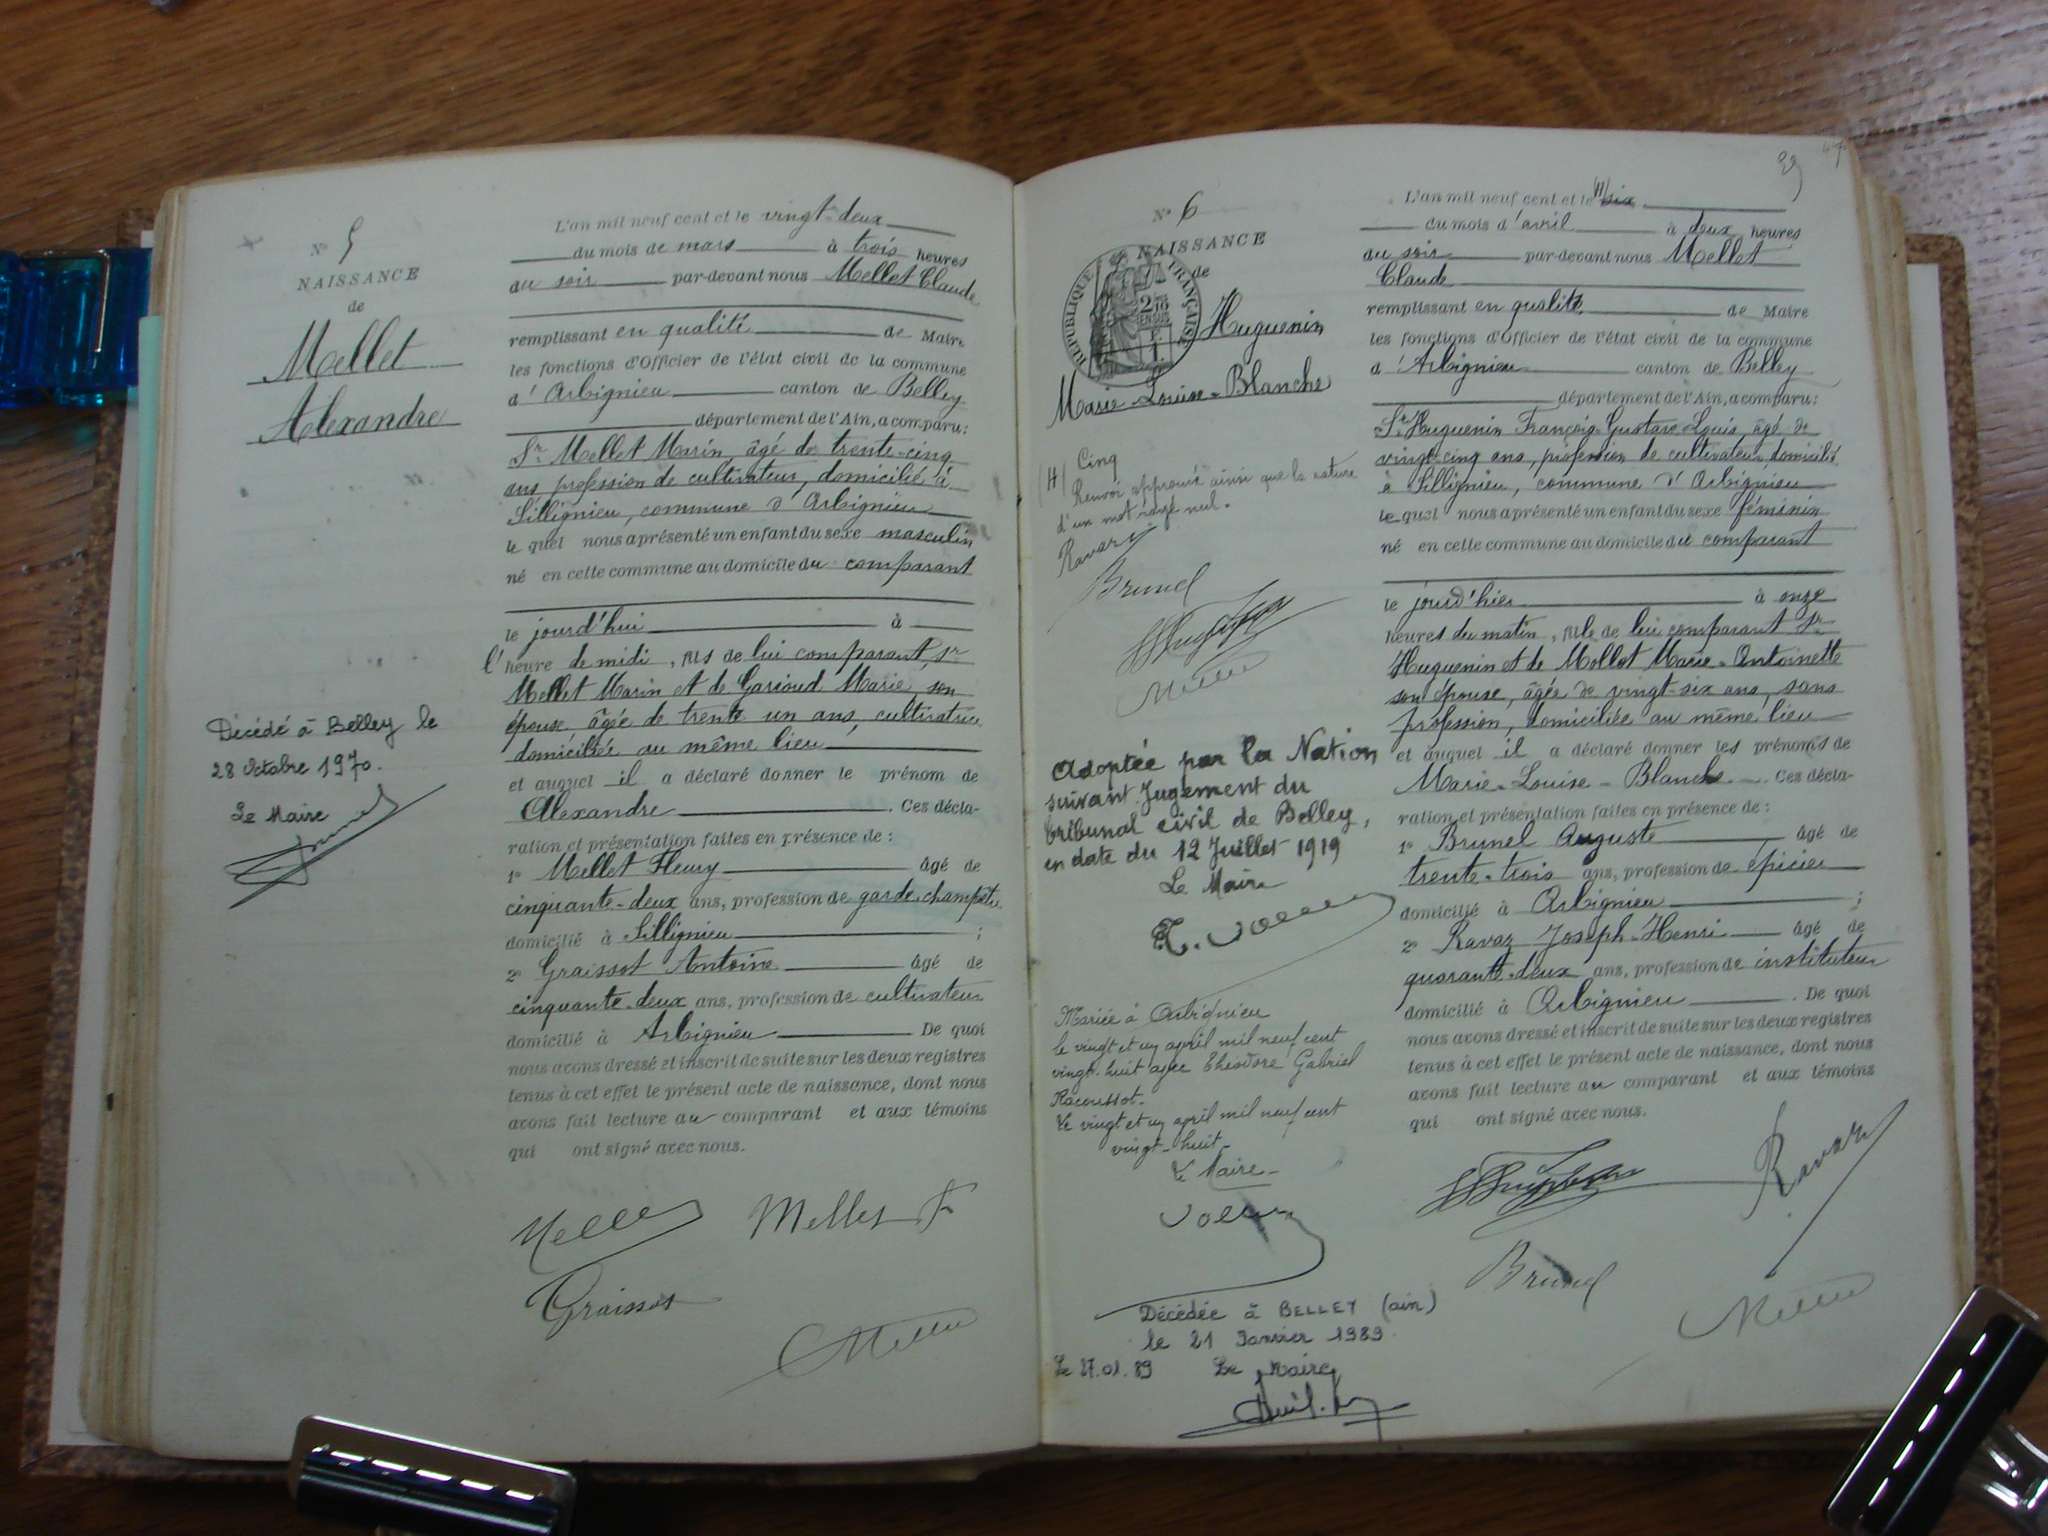 N° 5
NAISSANCE
de
Mellet
Alexandre
Décédé à Belley le
28 Octobre 1970.
Le Maire
L'an mil neuf cent et le vingt-deux
du mois de mars à trois heures
du soir par-devant nous Mellet Claude
remplissant en qualité de Maire
les fonctions d'Officier de l'état civil de la commune
d'Arbignieu canton de Belley
département de l'Ain, a comparu:
Sr. Mellet Marin, âgé de trente-cinq
ans, profession de cultivateur, domicilié à
Sillignieu, commune d'Arbignieu
le quel nous a présenté un enfant du sexe masculin
né en cette commune au domicile du comparant
le jourd'hui à
l'heure de midi, fils de lui comparant, Sr
Mellet Marin et de Garioud Marie, son
épouse, âgée de trente un ans, cultivatrice
domiciliée au même lieu
et auquel il a déclaré donner le prénom de
Alexandre. Ces décla-
ration et présentation faites en présence de :
1° Mellet Fleury âgé de
cinquante-deux ans, profession de garde-champêtre
domicilié à Sillignieu ;
2° Graissot Antoine âgé de
cinquante-deux ans, profession de cultivateur
domicilié à Arbignieu De quoi
nous avons dressé et inscrit de suite sur les deux registres
tenus à cet effet le présent acte de naissance, dont nous
avons fait lecture au comparant et aux témoins
qui ont signé avec nous.
Mellet Mellet F
Graissot
Mellet
N° 6
NAISSANCE
de
RÉPUBLIQUE FRANÇAISE
Huguenin
Marie-Louise-Blanche
H/ Cinq
Renvoi approuvé ainsi que la rature
d'un mot rayé nul.
Ravaz
Brunel
Mellet
Adoptée par la Nation
suivant Jugement du
tribunal civil de Belley,
en date du 12 Juillet 1919
Le Maire
Mariée à Arbignieu
le vingt et un april mil neuf cent
vingt-huit avec Théodore Gabriel
Racoussot.
Le vingt et un april mil neuf cent
vingt-huit
Le Maire
Décédée à BELLEY (ain)
le 21 Janvier 1989.
Le 27.01.89 Le Maire
39
47
L'an mil neuf cent et le H/ six
du mois d'avril à deux heures
du soir par-devant nous Mellet
Claude
remplissant en qualité de Maire
les fonctions d'Officier de l'état civil de la commune
d'Arbignieu canton de Belley
département de l'Ain, a comparu:
Sr. Huguenin François-Gustave-Louis, âgé de
vingt-cinq ans, profession de cultivateur, domicilié
à Sillignieu, commune d'Arbignieu
le quel nous a présenté un enfant du sexe féminin
né en cette commune au domicile du comparant
le jourd'hier à onze
heures du matin, fille de lui comparant Sr
Huguenin et de Mollet Marie-Antoinette
son épouse, âgée de vingt-six ans, sans
profession, domiciliée au même lieu
et auquel il a déclaré donner les prénoms de
Marie-Louise-Blanche. Ces décla-
ration et présentation faites en présence de :
1° Brunel Auguste âgé de
trente-trois ans, profession de épicier
domicilié à Arbignieu ;
2° Ravaz Joseph-Henri âgé de
quarante-deux ans, profession de instituteur
domicilié à Arbignieu. De quoi
nous avons dressé et inscrit de suite sur les deux registres
tenus à cet effet le présent acte de naissance, dont nous
avons fait lecture au comparant et aux témoins
qui ont signé avec nous.
Ravaz
Brunel
Mellet